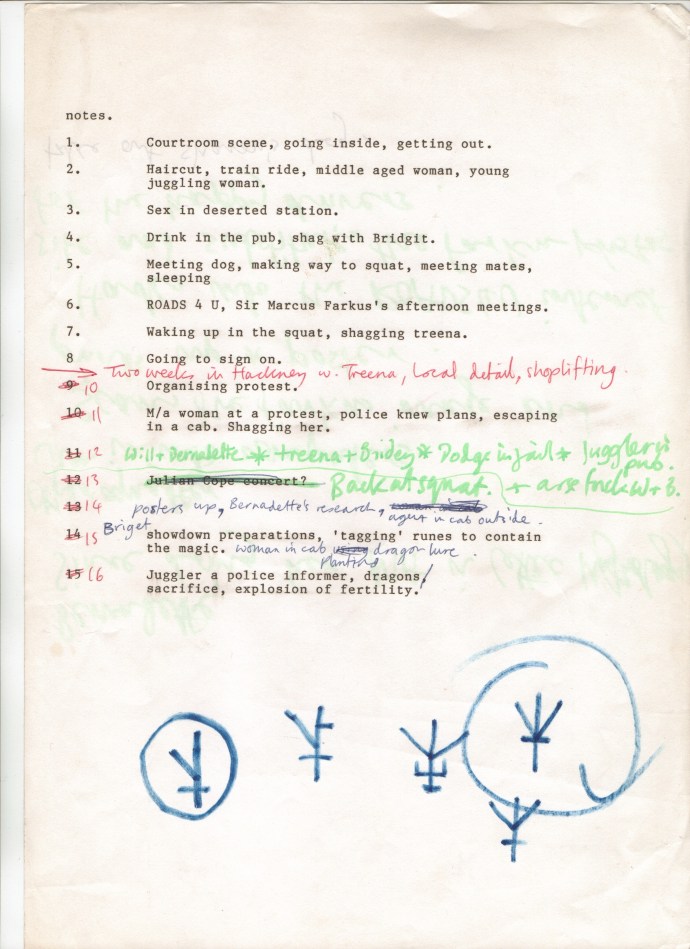 notes.
1. Courtroom scene, going inside, getting out.
2. Haircut, train ride, middle aged woman, young
juggling woman.
3. Sex in deserted station.
4. Drink in the pub, shag with Bridgit.
5. Meeting dog, making way to squat, meeting mates,
sleeping
6. ROADS 4 U, Sir Marcus Farkus's afternoon meetings.
7. Waking up in the squat, shagging treena.
8 Going to sign on.
Two weeks in Hackney w. Treena, Local detail, shoplifting.
9 10 Organising protest.
10 11 M/a woman at a protest, police knew plans, escaping
in a cab. Shagging her.
11 12 Will + Bernadette * treena + Bridey * Dodge in jail * Juggler in
pub.
12 13 Julian Cope concert? Back at squat. + arse fuck W + B.
13 14 posters up, Bernadette's research,
agent in cab outside.
14 15 Briget showdown preparations, 'tagging' runes to contain
the magic. woman in cab planting dragon lure.
15 16 Juggler a police informer, dragons/
sacrifice, explosion of fertility.